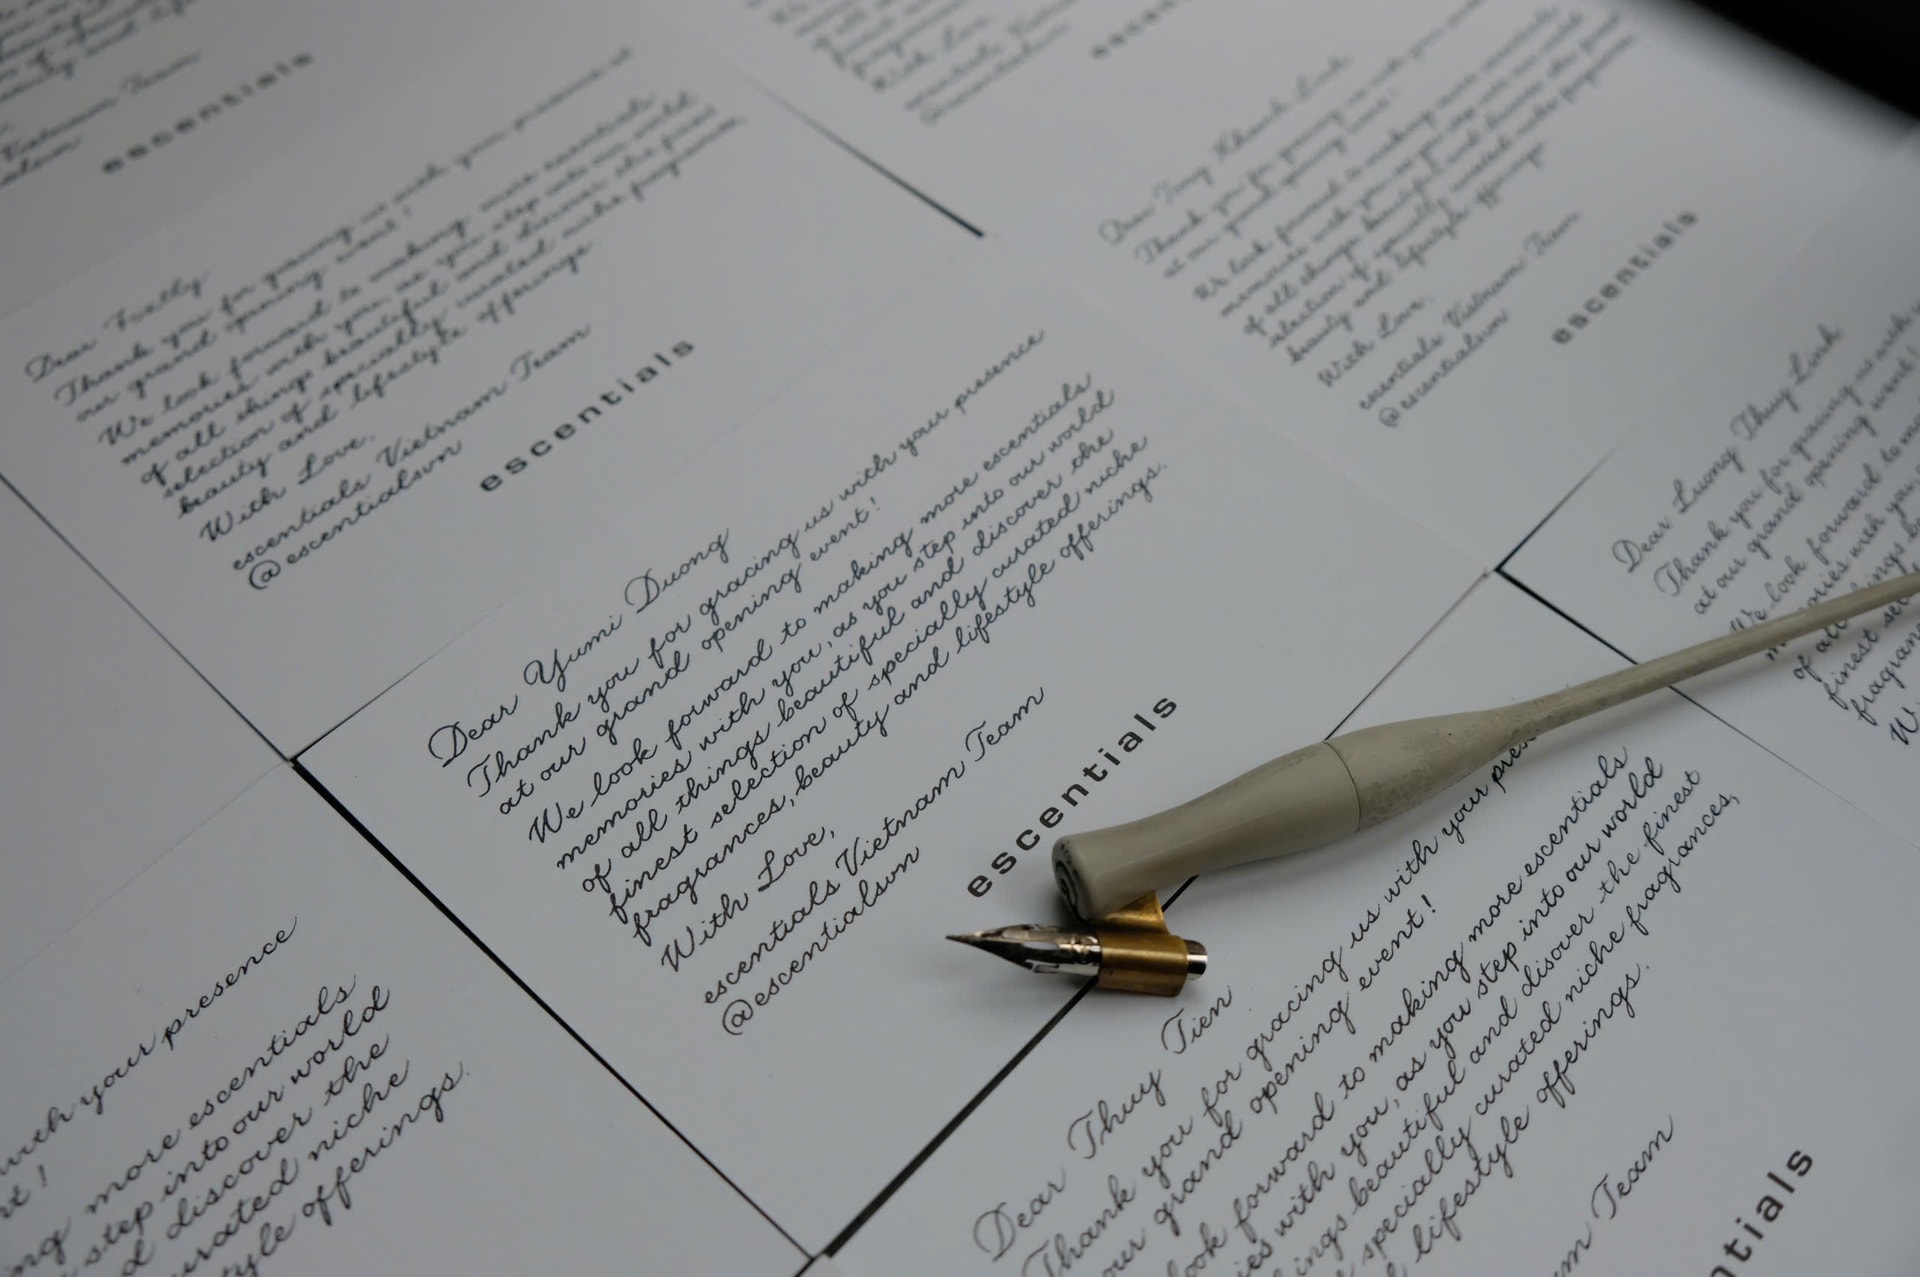 Vietnam Team
escentials
Dear Foxtly
Thank you for gracing us with your presence at
our grand opening event!
We look forward to making more escentials
memories with you, as you step into our world
of all things beautiful and discover the finest
selection of specially curated niche fragrances
beauty and lifestyle offerings
With Love,
escentials Vietnam Team
@escentialsvn
escentials
With Love,
Dear Tony Khanh Linh
Thank you for gracing us with your
at our grand opening event!
We look forward to making more escentials
memories with you, as you step into our world
of all things beautiful and discover the finest
selection of specially curated niche fragrances
beauty and lifestyle offerings
With Love,
escentials Vietnam Team
@escentialsvn
escentials
Dear Yumi Duong
Thank you for gracing us with your presence
at our grand opening event!
We look forward to making more escentials
memories with you, as you step into our world
of all things beautiful and discover the
finest selection of specially curated niche
fragrances, beauty and lifestyle offerings.
With Love,
escentials Vietnam Team
@escentialsvn
escentials
Dear Luong Thuy Linh
Thank you for gracing us with
at our grand opening event!
We look forward to
with you,
of all
finest
with your presence
more escentials
step into our world
discover the
curated niche
offerings.
Dear Thuy Tien
Thank you for gracing us with your
our grand opening event!
look forward to making more escentials
with you, as you step into our world
beautiful and disover the finest
specially curated niche fragrances,
lifestyle offerings.
Team